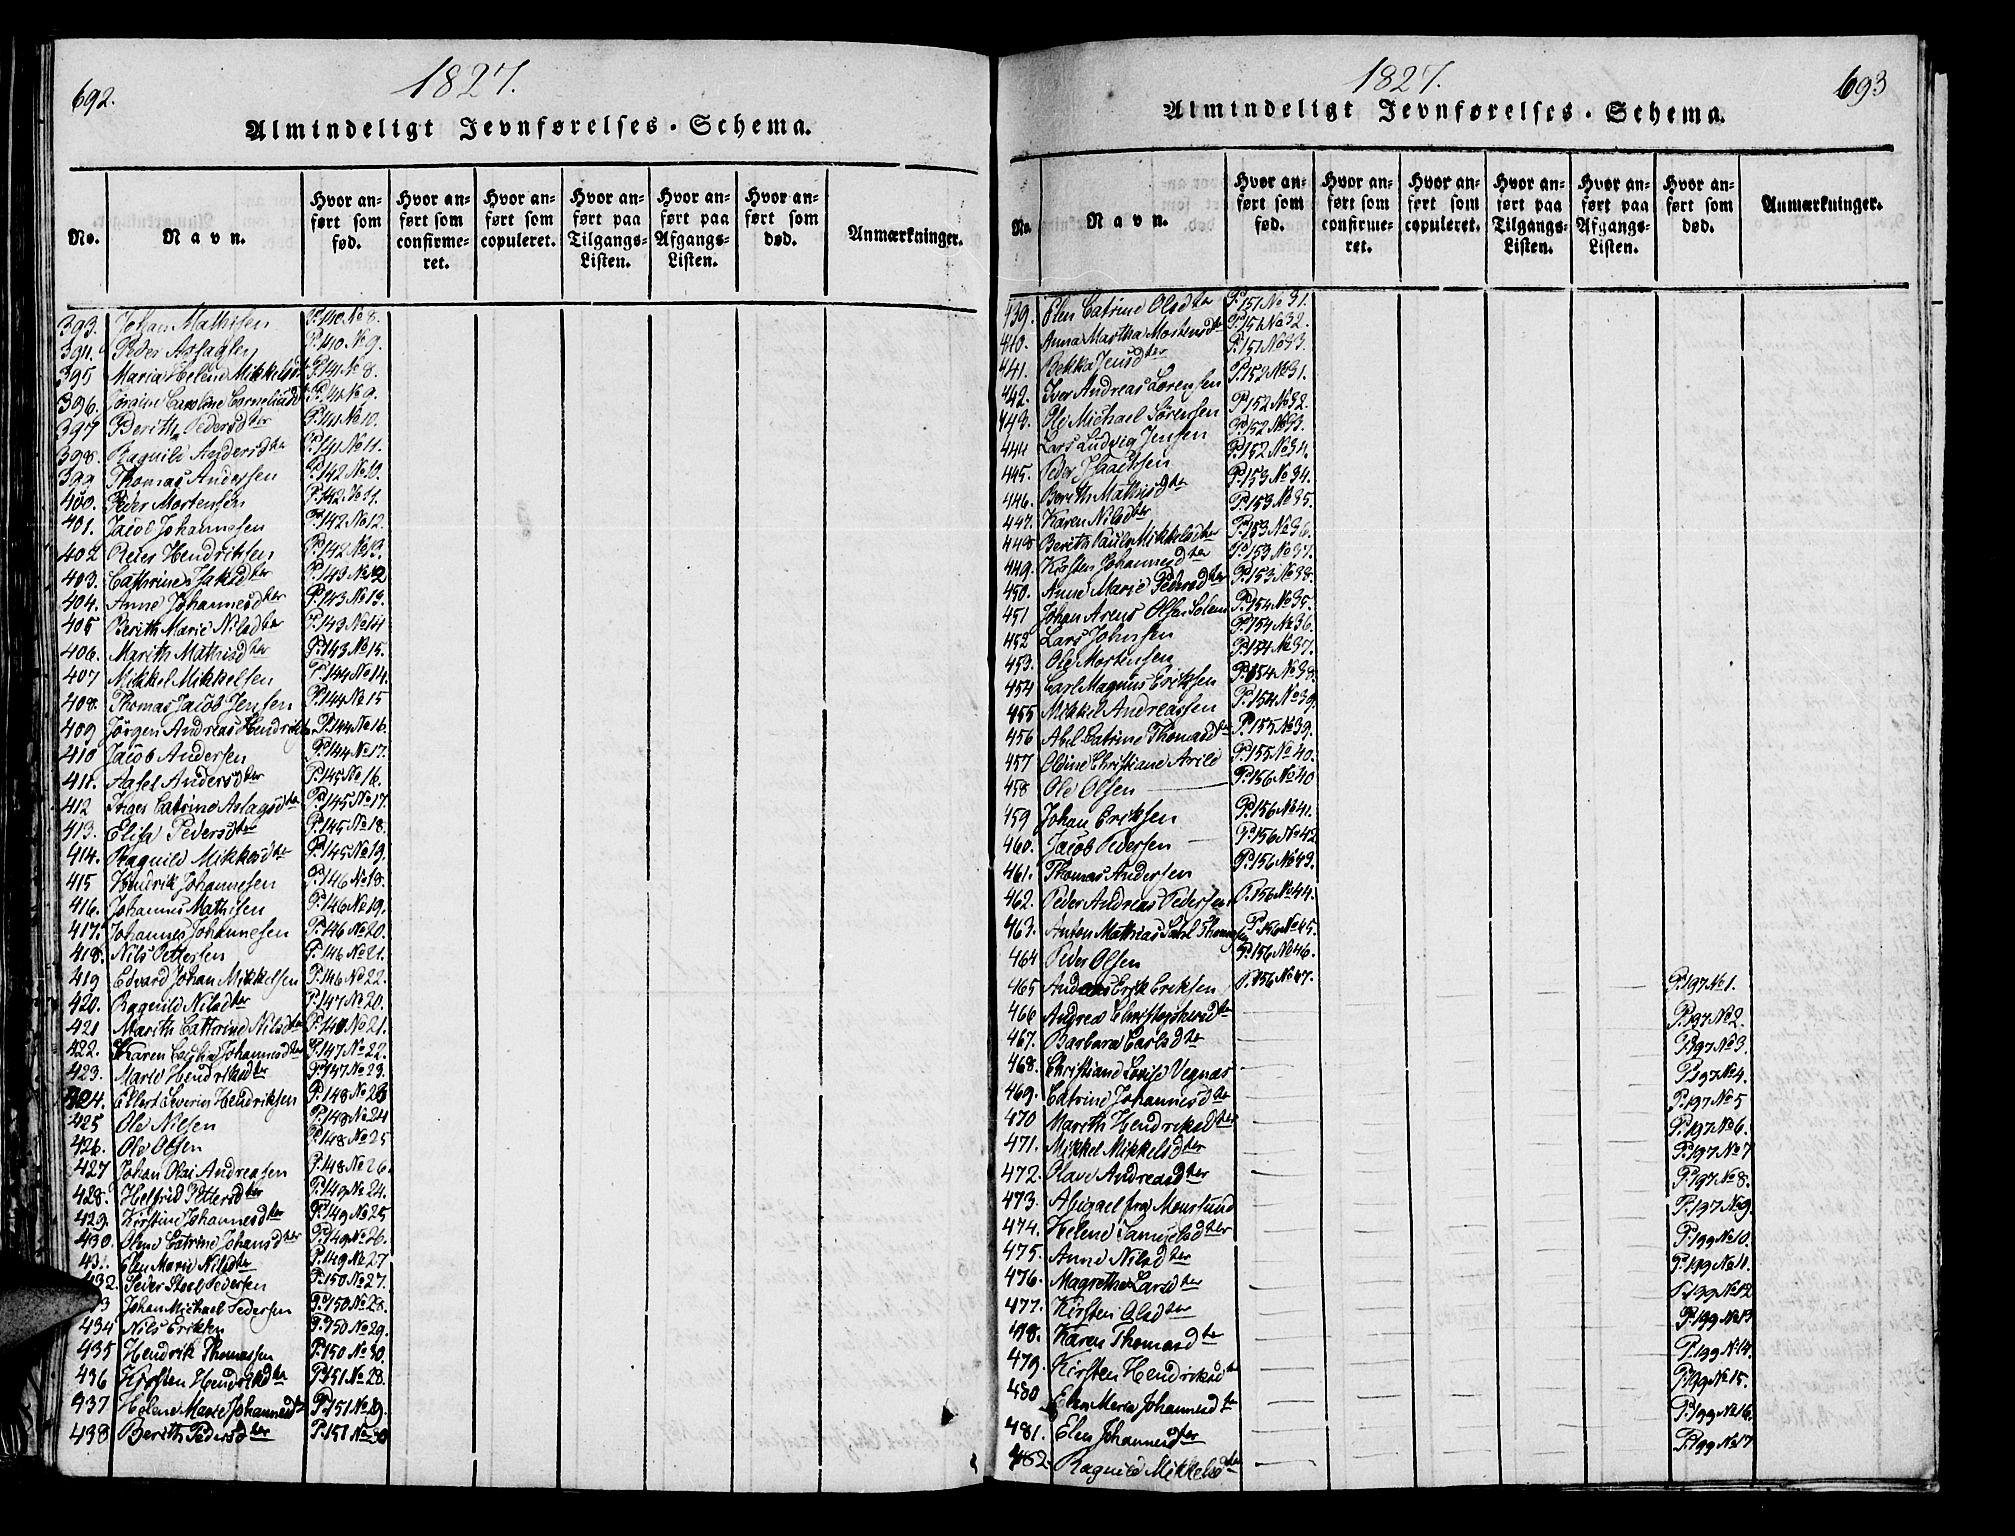 692.
1827.
Almindeligt Jevnførelses-Schema.
No. Navn. Hvor anført som fød. Hvor anført som confirmeret. Hvor anført som copuleret. Hvor anført paa Tilgangs-Listen. Hvor anført paa Afgangs-Listen. Hvor anført som død. Anmærkninger.
393. Johan Mathisen P. 140 No 8.
394. Peder Aslagsen P. 140 No 9.
395 Maria Helene Mikkelsd P. 141 No 8.
396. Caroline Corneliisd P. 141 No 9.
397 Berith Pedersdter P. 141 No 10.
398. Ragnild Andersdter P. 141 No 11.
399 Thomas Andersen P. 142 No 10.
400. Peder Mortensen P. 142 No 11.
401. Jacob Johannesen P. 142 No 12.
402 Peder Hendriksen P. 142 No 13.
403. Cathrine Isaksdter P. 143 No 12
404. Anne Johannesdter P. 143 No 13.
405 Berith Marie Nilsdter P. 143 No 14
406. Marith Mathisdter P. 143 No 15.
407 Mikkel Mikkelsen P. 144 No 14.
408. Thomas Jacob Jensen P. 144 No 15
409 Jörgen Andreas Hendriks P. 144 No 16.
410 Jacob Andersen P. 144 No 17.
411. Andersdter P. 145 No 16.
412 Inger Catrine Aslagsdter P. 145 No 17.
413. Elisa Pedersdter P. 145 No 18.
414. Ragnild Mikkelsdter P. 145 No 19.
415 Hendrik Johannesen P. 146 No 18.
416. Johannes Mathisen P. 146 No 19.
417. Johannes Johannesen P. 146 No 20.
418. Nils Pettersen P. 146 No 21.
419 Edvard Johan Mikkelsen P. 146 No 22.
420. Ragnild Nilsdter P. 147 No 20.
421 Marith Cathrine Nilsdter P. 147 No 21.
422. Karen Johannesdter P. 147 No 22.
423. Marie Hendriksdter P. 147 No 23.
424. Ellert Severin Hendriksen P. 148 No 23
425 Ole Nilsen P. 148 No 24
426. Ole Olsen P. 148 No 25
427 Johan Olai Andreasen P. 148 No 26.
428. Helfrid Pettersdter P. 149 No 24.
429. Kirstine Johannesdter P. 149 No 25
430. Catrine Johansdter P. 149 No 26.
431. Elen Marie Nilsdter P. 149 No 27
432. Peder Pedersen P. 150 No 27.
433 Johan Michael Pedersen P. 150 No 28.
434 Nils Eriksen P. 150 No 29.
435 Hendrik Thomassen P. 150 No 30.
436 Kirsten Hendriksdter P. 151 No 28.
437 Helene Marie Johannesd P. 151 No 29.
438 Berith Pedersdter P. 151 No 30
693
1827.
Almindeligt Jevnførelses-Schema.
No. Navn. Hvor anført som fød. Hvor anført som confirmeret. Hvor anført som copuleret. Hvor anført paa Tilgangs-Listen. Hvor anført paa Afgangs-Listen. Hvor anført som død. Anmærkninger.
439. Elen Catrine Olsdter P. 151 No 31.
440. Anna Martha Mortensdter P. 151 No 32.
441. Bekka Jensdter P. 151 No 33.
442. Iver Andreas Lorensen P. 152 No 31.
443. Ole Michael Sörensen P. 152 No 32.
444 Lars Ludvig Jensen P. 152 No 33.
445. Peder Isaacksen P. 152 No 34.
446. Berith Mathisdter P. 153 No 34.
447. Karen Nilsdter P. 153 No 35.
448 Berith Paulu Mikkelsdter P. 153 No 36.
449. Kirsten Johannesdter P. 153 No 37.
450. Anne Marie Pedersdter P. 153 No 38.
451 Johan Arent Olsen Solem P. 154 No 35.
452 Lars Johnsen P. 154 No 36.
453. Ole Mortensen P. 154 No 37.
454 Carl Magnus Eriksen P. 154 No 38.
455 Mikkel Andreassen P. 154 No 39.
456 Abel Catrine Thomasdter P. 155 No 39.
457 Oldine Christiane Arild P. 155 No 40.
458 Ole Olsen P. 156 No 40
459 Johan Eriksen P. 156 No 41.
460. Jacob Pedersen P. 156 No 42
461. Thomas Andersen P. 156 No 43.
462. Peder Andreas Pedersen P. 156 No 44.
463. Anton Mathias Carl P. 156 No 45.
464 Peder Olsen P. 156 No 46.
465 Andreas Erik Eriksen P. 156 No 47. P. 197 No 1.
466 Andrea Christophersdter P. 197 No 2.
467. Barbara Carlsdter P. 197 No 3.
468. Christiane Lovise Vegnæs P. 197 No 4.
469. Catrine Johannesdter P. 197 No 5
470 Marith Hendriksdter P. 197 No 6.
471. Mikkel Mikkelsdter P. 197 No 7
472. Olave Andreasdter P. 197 No 8.
473. Abigael fra Maursund P. 197 No 9.
474. Helene Samuelsdter P. 199 No 10.
475. Anne Nilsdter P. 199 No 11.
476. Magrethe Larsdter P. 199 No 12
477. Kirsten Olsdter P. 199 No 13
478. Karen Thomasdter P. 199 No 14.
479. Kirsten Hendriksdter P. 199 No 15.
480 Elen Maria Johannesdter P. 199 No 16.
481. Elen Johannesdter P. 199 No 17
482. Ragnild Mikkelsdter